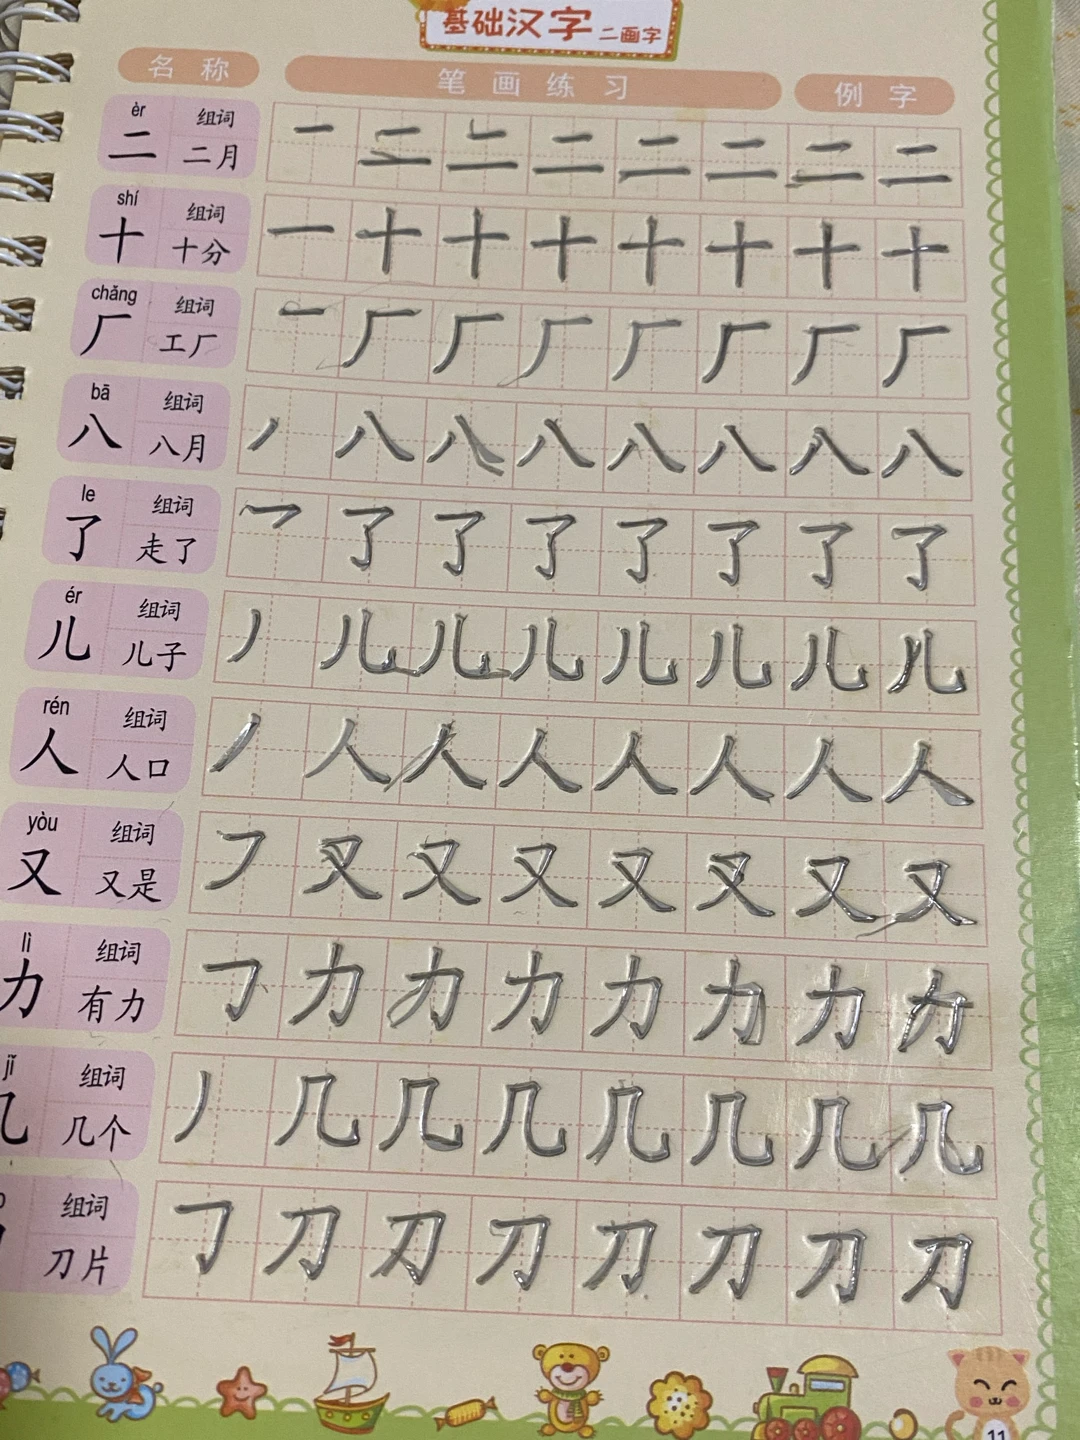 基础汉字 二画字
名称 笔画练习 例字
èr 组词
二 二月 一 二 二 二 二 二 二 二
shí 组词
十 十分 一 十 十 十 十 十 十 十
chǎng 组词
厂 工厂 一 厂 厂 厂 厂 厂 厂 厂
bā 组词
八 八月 丿 八 八 八 八 八 八 八
le 组词
了 走了 乛 了 了 了 了 了 了 了
ér 组词
儿 儿子 丿 儿 儿 儿 儿 儿 儿 儿
rén 组词
人 人口 丿 人 人 人 人 人 人 人
yòu 组词
又 又是 ㇇ 又 又 又 又 又 又 又
lì 组词
力 有力 𠃌 力 力 力 力 力 力 力
jǐ 组词
几 几个 丿 几 几 几 几 几 几 几
组词
刀片 𠃌 刀 刀 刀 刀 刀 刀 刀
11